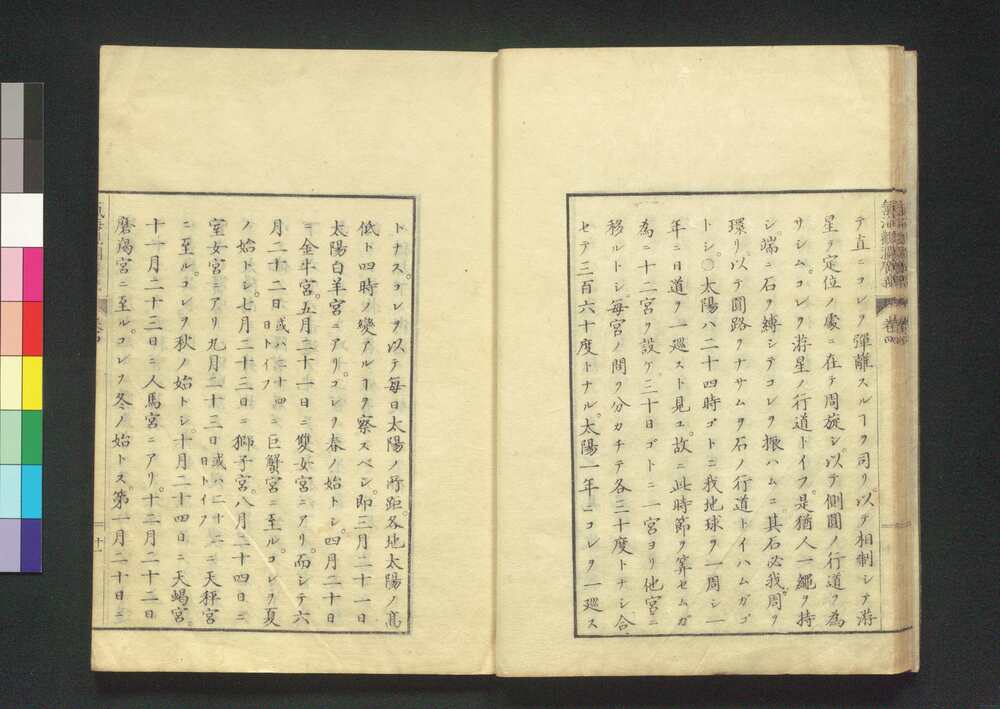 テ直ニコレヲ弾離スルヿヲ司リ。以テ相制シテ游
星ヲ定位ノ處ニ在テ周旋シ。以テ側圓ノ行道ヲ為
サシム。コレヲ游星ノ行道トイフ。是猶人一繩ヲ持
シ。端ニ石ヲ縛シテコレヲ振ハムニ其石必我周ヲ
環リ以テ圓路ヲナサムヲ石ノ行道トイハムガゴ
トシ。〇太陽ハ二十四時ゴトニ我地球ヲ一周シ一
年ニ日道ヲ一巡スト見ユ。故ニ此時節ヲ算セムガ
為ニ十二宮ヲ設ケ三十日ゴトニ一宮ヨリ他宮ニ
移ルトシ毎宮ノ間ヲ分カチテ各三十度トナシ合
セテ三百六十度トナル。太陽一年ニコレヲ一巡ス
トナス。コレヲ以テ毎日太陽ノ所距各地太陽ノ髙
低ト四時ノ變アルヿヲ察スベシ。即三月二十一日
太陽白羊宮ニアリ。コレヲ春ノ始トシ。四月二十日
ニ金牛宮。五月二十一日ニ雙女宮ニアリ。而シテ六
月二十二日或ハ二十四日トイフニ巨蟹宮ニ至ル。コレヲ夏
ノ始トシ。七月二十三日ニ獅子宮。八月二十四日ニ
室女宮ニアリ九月二十三日或ハ二十二日トイフニ天秤宮
ニ至ル。コレヲ秋ノ始トシ。十月二十四日ニ天蝎宮
十一月二十三日ニ人馬宮ニアリ。十二月二十二日
磨羯宮ニ至ル。コレヲ冬ノ始トス。第一月二十日ニ
十一